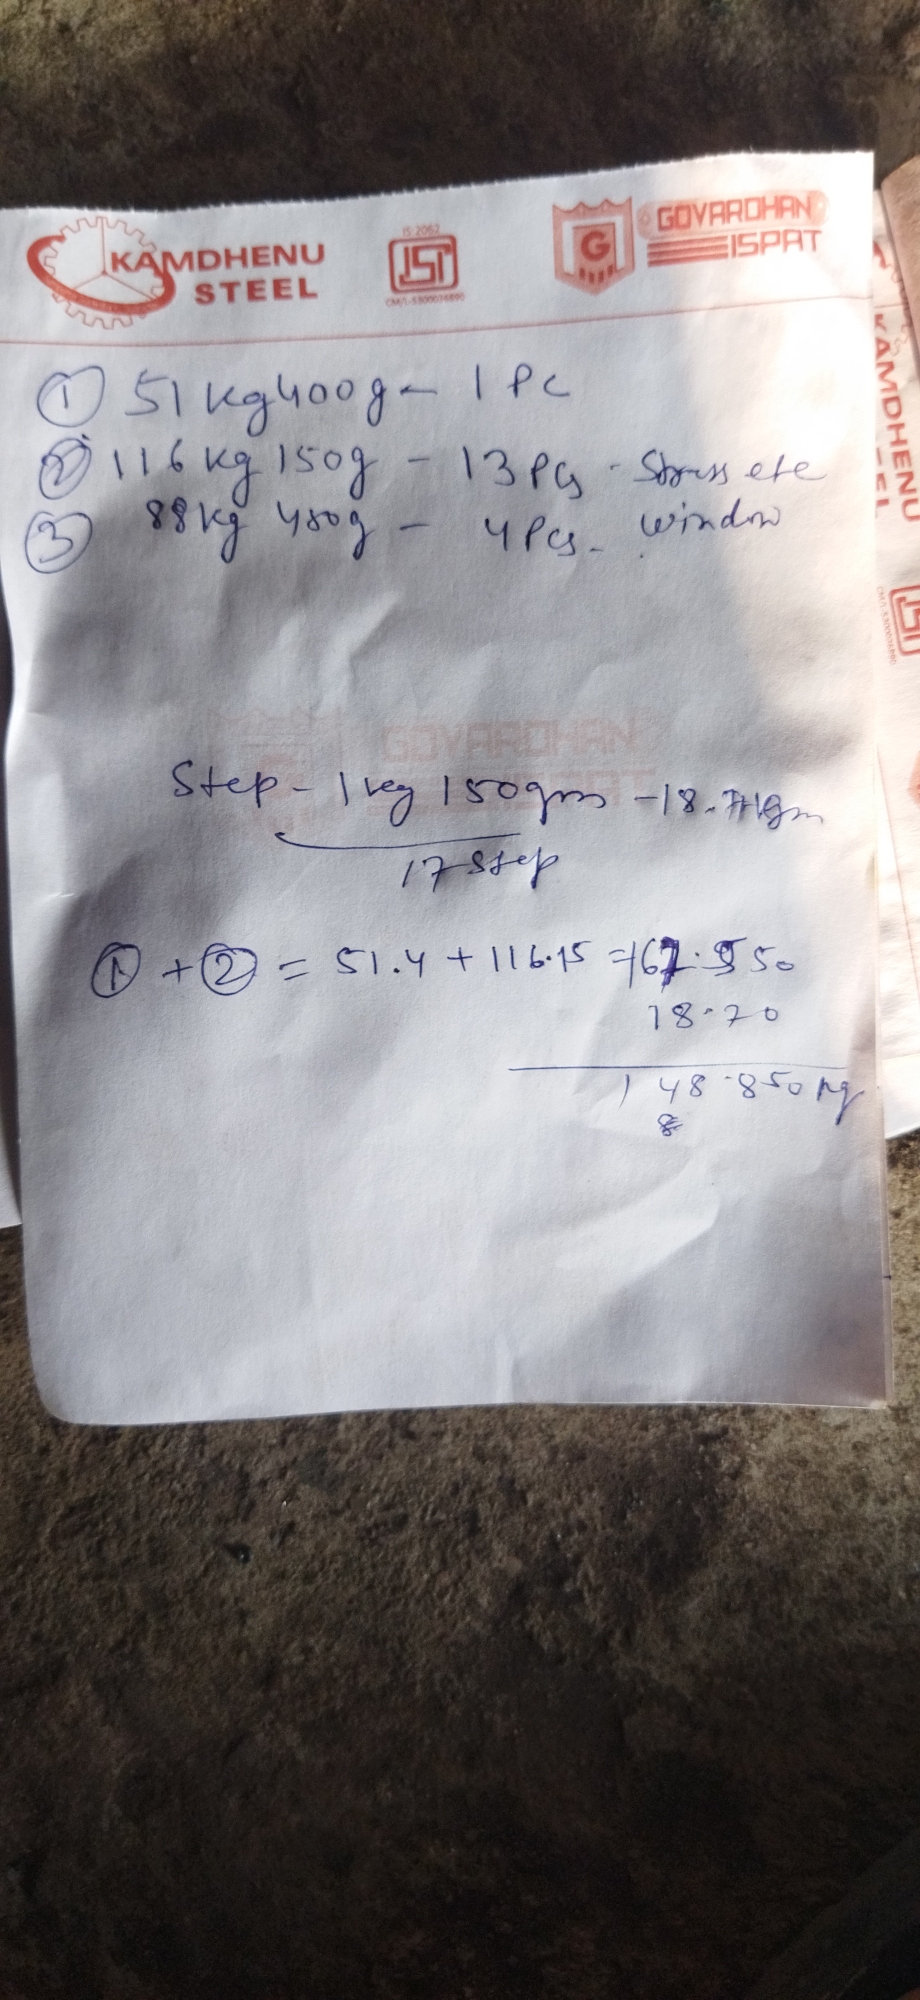 KAMDHENU
STEEL
IS:2062
ISI
CM/L-5300026890
G
GOVARDHAN
ISPAT
① 51 kg 400g - 1 Pc
② 116 kg 150g - 13 Pcs - ete
③ 88 kg 480g - 4 Pcs. window
GOVARDHAN
ISPAT
Step - 1 kg 150gm - 18.
17 Step
① + ② = 51.4 + 116.15 = 167.550
18.70
148.850 kg
8
KAMDHENU